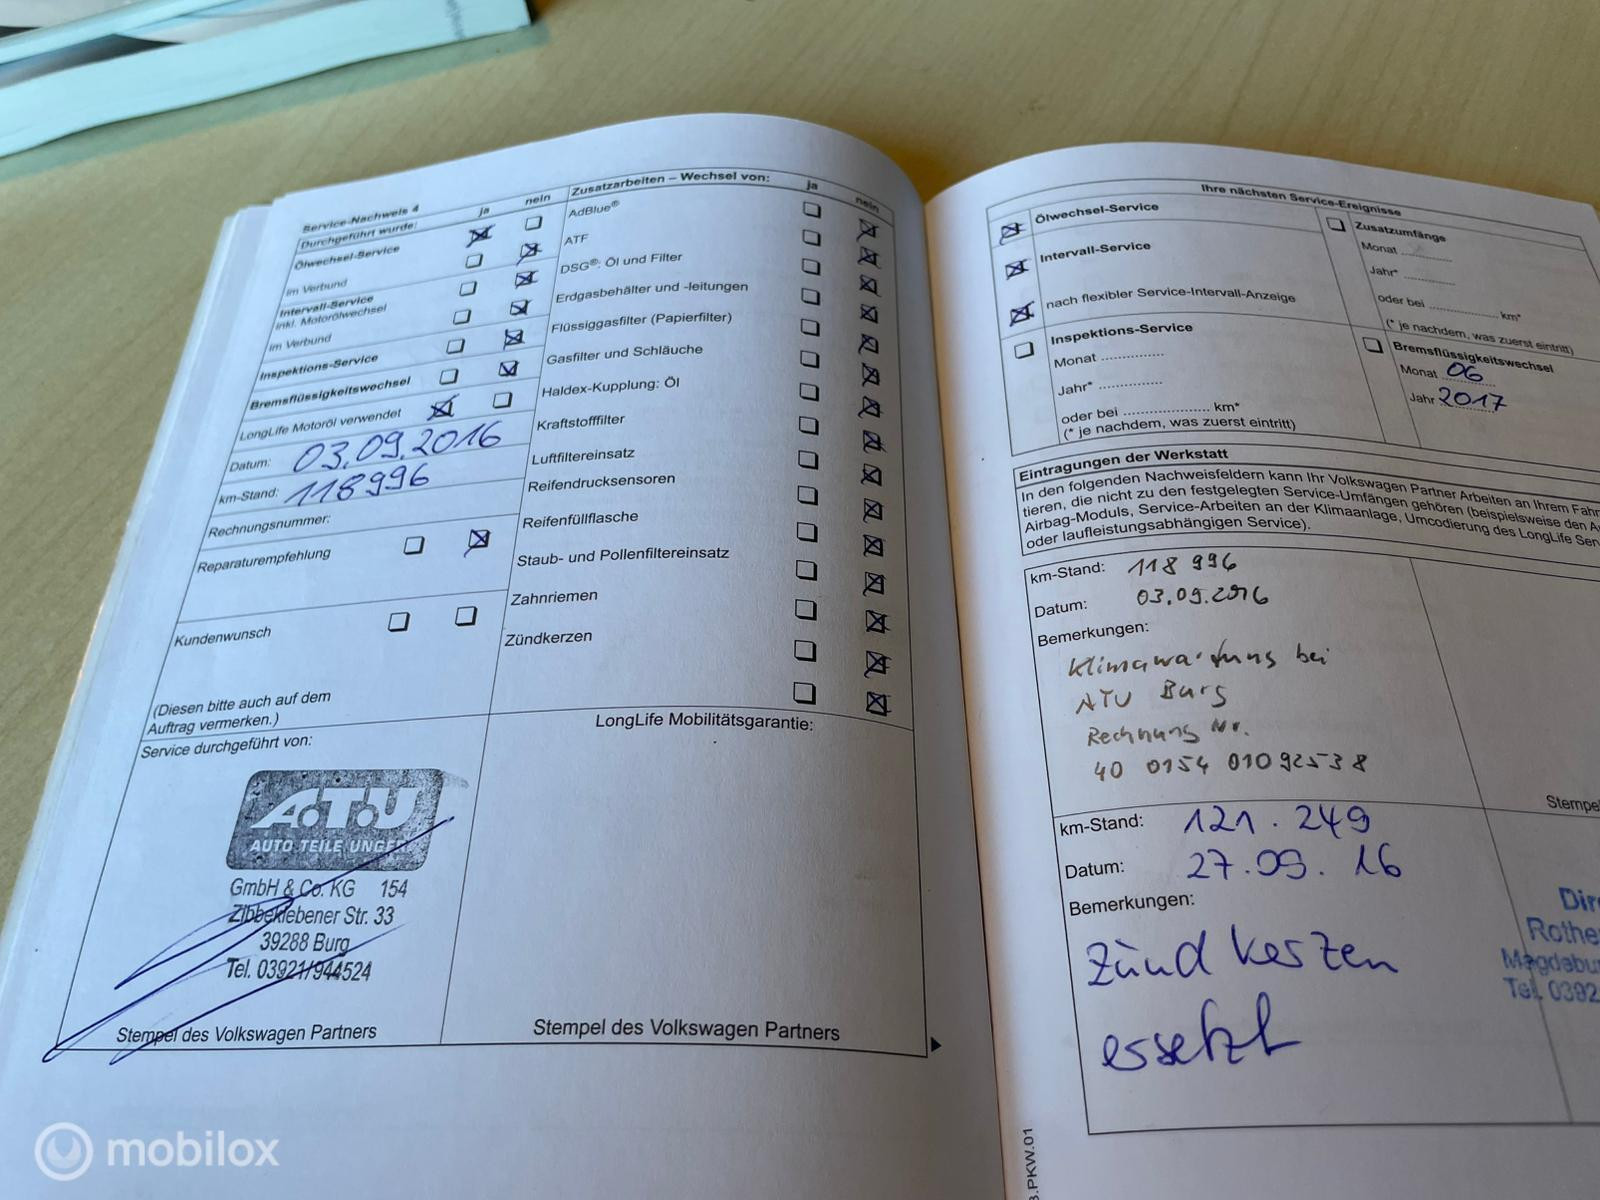 Service-Nachweis 4
ja
nein
Durchgeführt wurde:
Ölwechsel-Service
im Verbund
Intervall-Service
inkl. Motorölwechsel
im Verbund
Inspektions-Service
Bremsflüssigkeitswechsel
LongLife Motoröl verwendet
Datum: 03.09.2016
km-Stand: 118996
Rechnungsnummer:
Reparaturempfehlung
Kundenwunsch
(Diesen bitte auch auf dem
Auftrag vermerken.)
Zusatzarbeiten – Wechsel von:
ja
nein
AdBlue®
ATF
DSG®: Öl und Filter
Erdgasbehälter und -leitungen
Flüssiggasfilter (Papierfilter)
Gasfilter und Schläuche
Haldex-Kupplung: Öl
Kraftstofffilter
Luftfiltereinsatz
Reifendrucksensoren
Reifenfüllflasche
Staub- und Pollenfiltereinsatz
Zahnriemen
Zündkerzen
Service durchgeführt von:
A.T.U
AUTO TEILE UNGER
GmbH & Co. KG 154
Zibbeklebener Str. 33
39288 Burg
Tel. 03921/944524
Stempel des Volkswagen Partners
LongLife Mobilitätsgarantie:
Stempel des Volkswagen Partners
Ihre nächsten Service-Ereignisse
Ölwechsel-Service
Intervall-Service
nach flexibler Service-Intervall-Anzeige
Inspektions-Service
Monat
Jahr*
oder bei km*
(* je nachdem, was zuerst eintritt)
Zusatzumfänge
Monat
Jahr*
oder bei km*
(* je nachdem, was zuerst eintritt)
Bremsflüssigkeitswechsel
Monat 06
Jahr 2017
Eintragungen der Werkstatt
In den folgenden Nachweisfeldern kann Ihr Volkswagen Partner Arbeiten an Ihrem
tieren, die nicht zu den festgelegten Service-Umfängen gehören (beispielsweise den
Airbag-Moduls, Service-Arbeiten an der Klimaanlage, Umcodierung des LongLife
oder laufleistungsabhängigen Service).
km-Stand: 118 996
Datum: 03.09.2016
Bemerkungen:
Klimawartung bei
ATU Burg
Rechnung Nr.
40 0154 01092538
km-Stand: 121.249
Datum: 27.09.16
Bemerkungen:
Zündkerzen
ersetzt
Tel. 0392
.PKW.01
mobilox